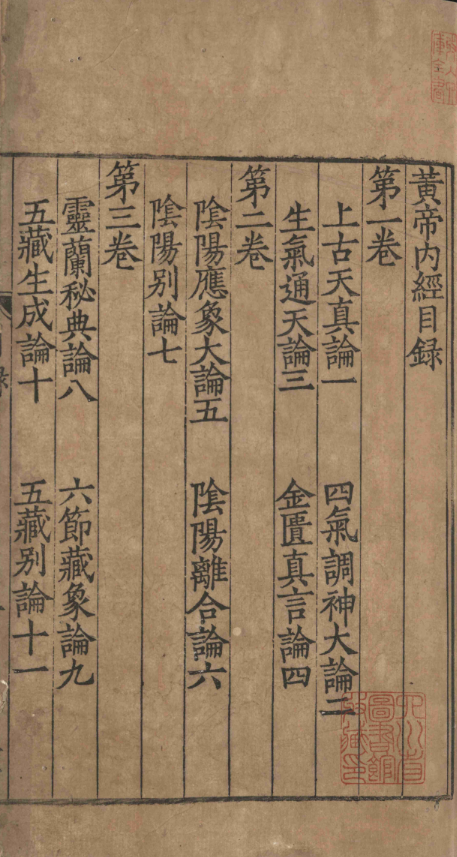 黃帝內經目録
第一卷
上古天真論一 四氣調神大論二
生氣通天論三 金匱真言論四
第二卷
陰陽應象大論五 陰陽離合論六
陰陽别論七
第三卷
靈蘭秘典論八 六節藏象論九
五藏生成論十 五藏别論十一